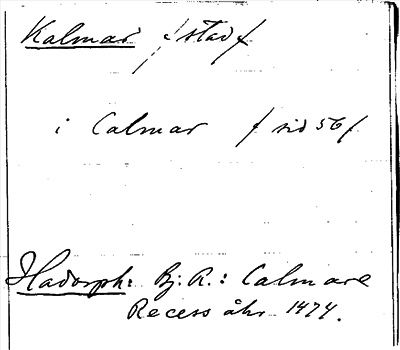 Kalmar / stad /
i Calmar / sid 56 /
Hadorph: Bj. R.: Calmare
Recess åhr 1474.